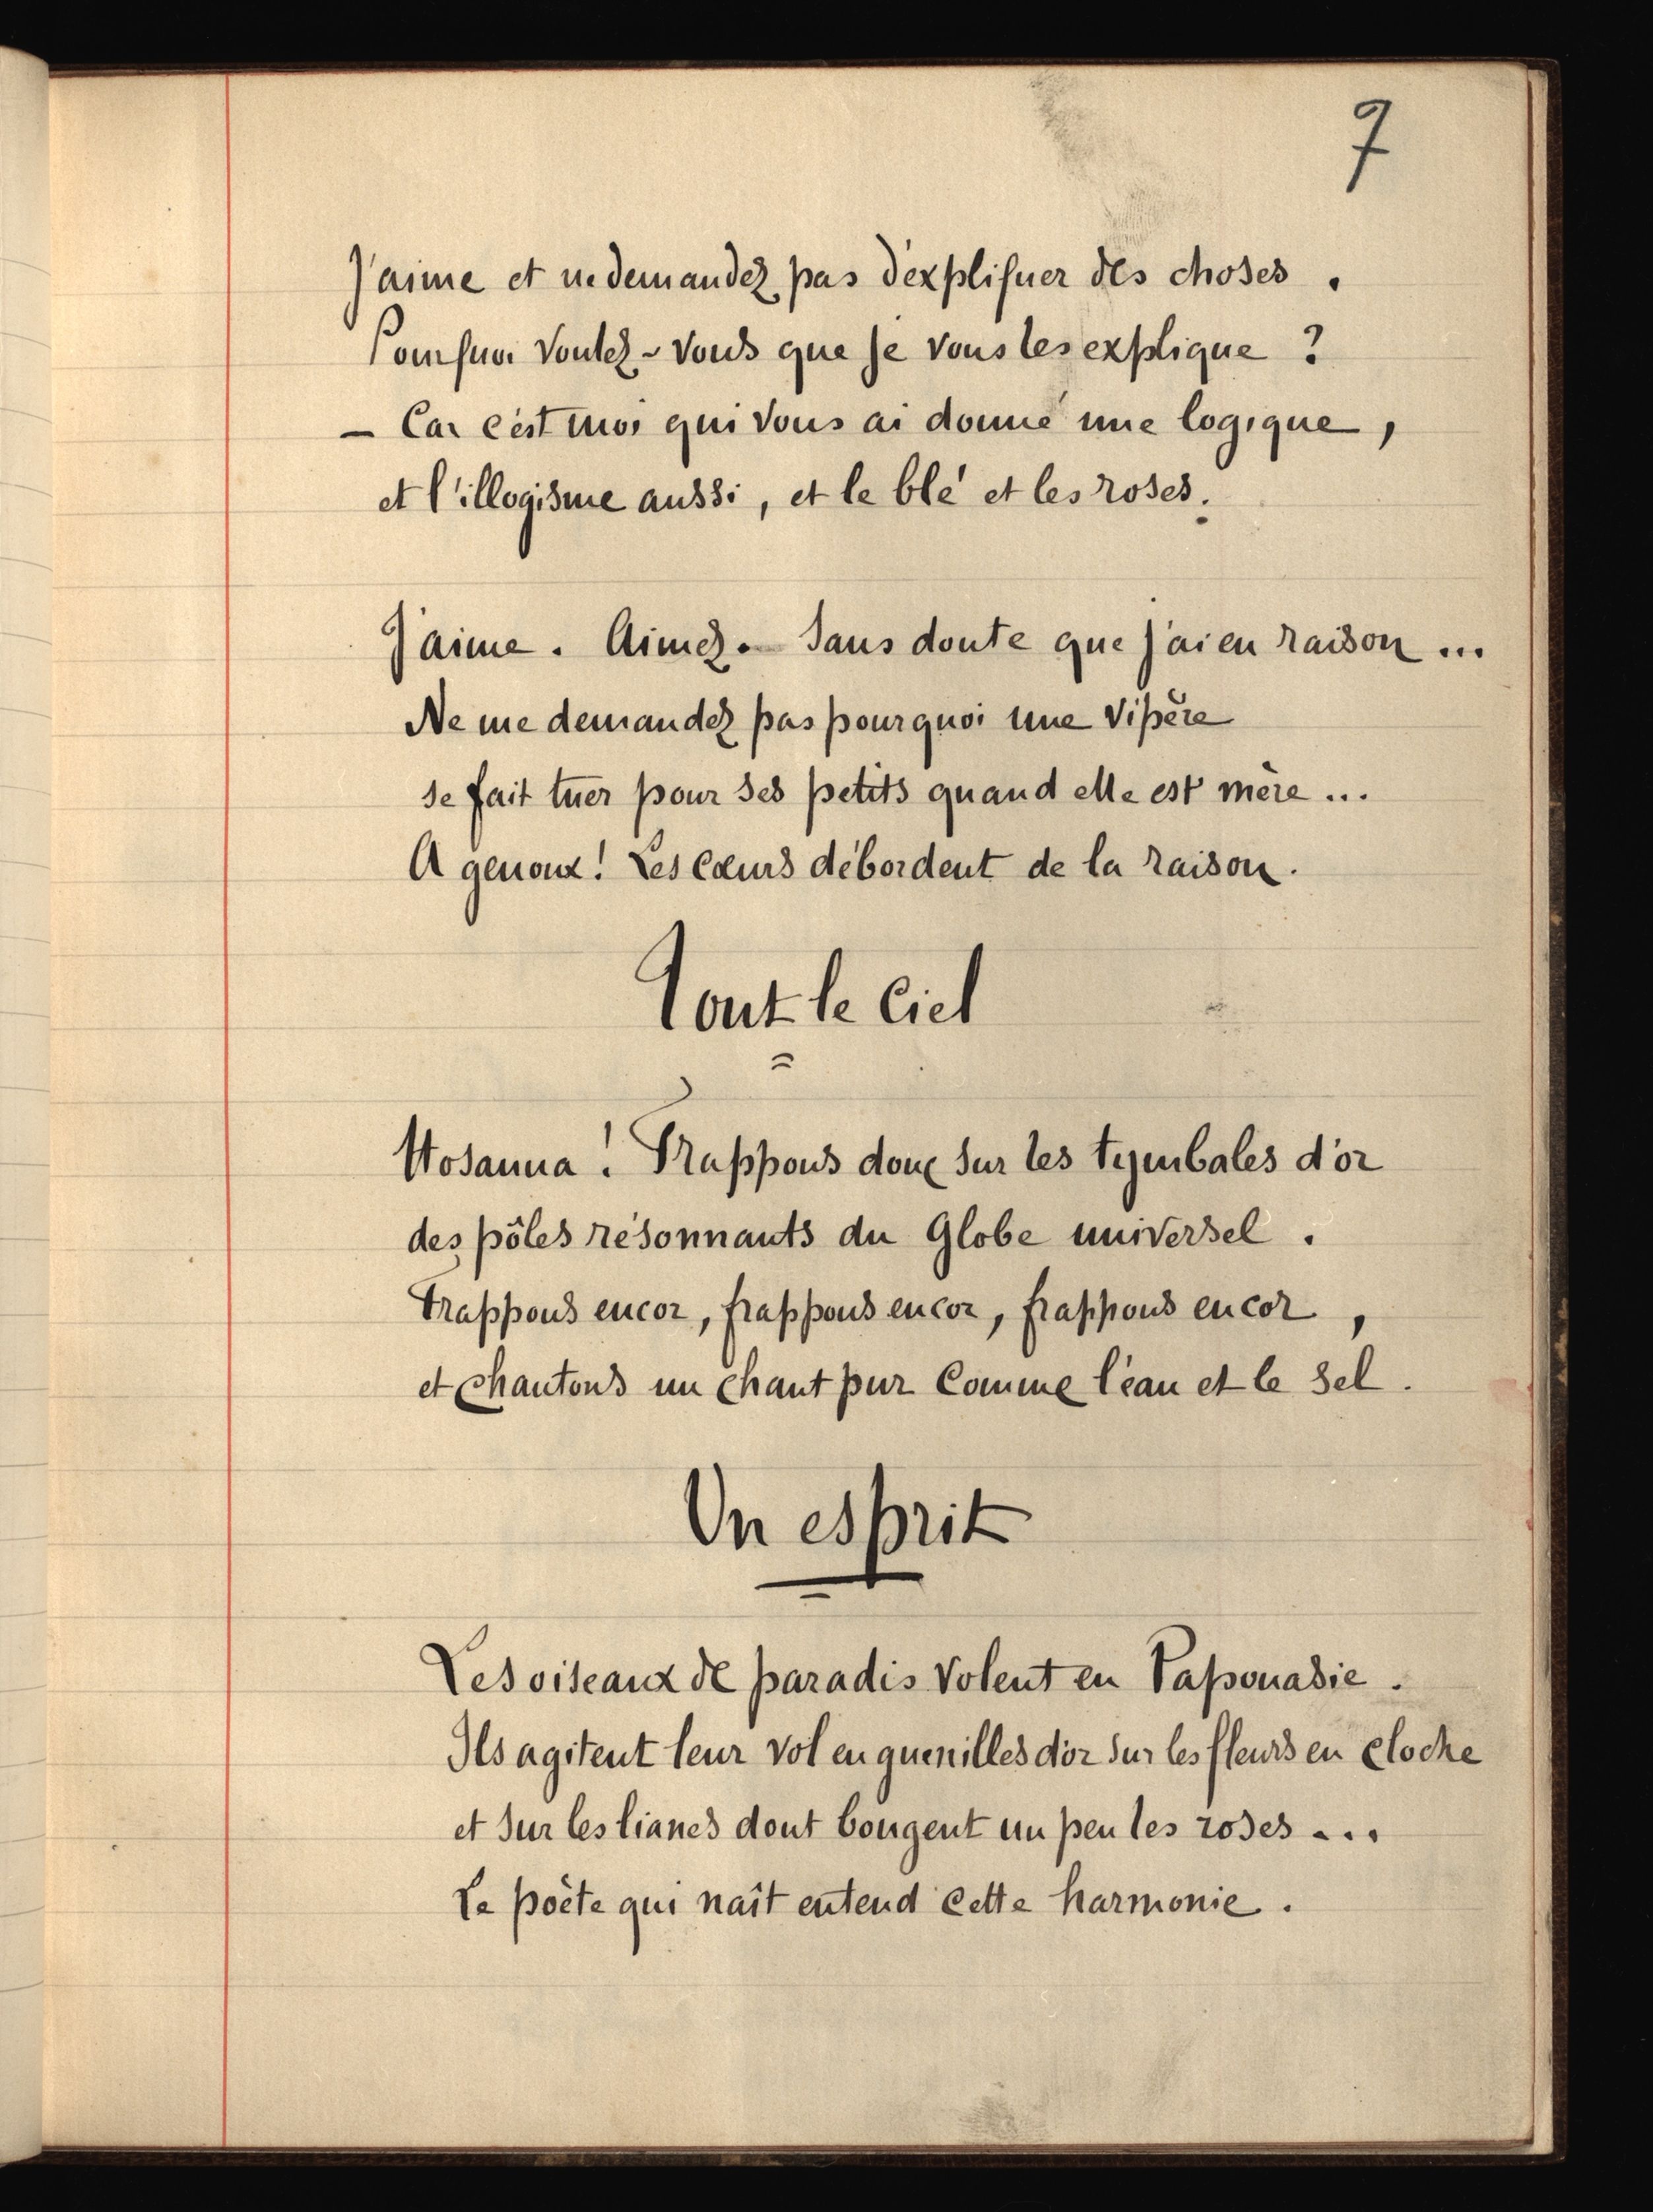 7
J'aime et ne demandez pas d'expliquer des choses.
Pourquoi voulez-vous que je vous les explique ?
— Car c'est moi qui vous ai donné une logique,
et l'illogisme aussi, et le blé et les roses.
J'aime. Aimez. Sans doute que j'ai eu raison ...
Ne me demandez pas pourquoi une vipère
se fait tuer pour ses petits quand elle est mère ...
A genoux ! Les cœurs débordent de la raison.
Tout le Ciel
Hosanna ! Frappons donc sur les tymbales d'or
des pôles résonnants du Globe universel.
Frappons encor, frappons encor, frappons encor,
et chantons un chant pur comme l'eau et le sel.
Un esprit
Les oiseaux de paradis volent en Papouasie.
Ils agitent leur vol en guenilles d'or sur les fleurs en cloche
et sur les lianes dont bougent un peu les roses ...
Le poète qui naît entend cette harmonie.